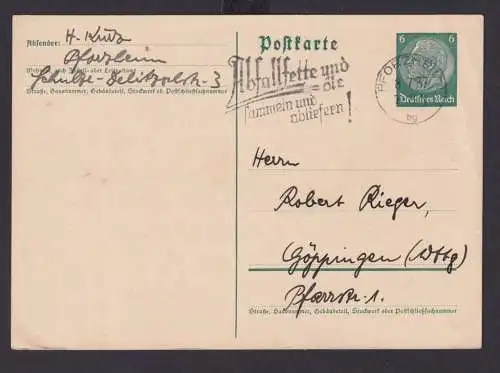 Absender: H. Kutz
Pforzheim
Schultze-Delitzschstr. 3
Straße, Hausnummer, Gebäudeteil, Stockwerk od. Postschließfachnummer
Postkarte
Abfallfette und
öle
sammeln und
abliefern!
PFORZHEIM
bg
6 6
Deutsches Reich
Herrn
Robert Rieger,
Göppingen (Wttg)
Pfarrstr. 1.
Straße, Hausnummer, Gebäudeteil, Stockwerk oder Postschließfachnummer